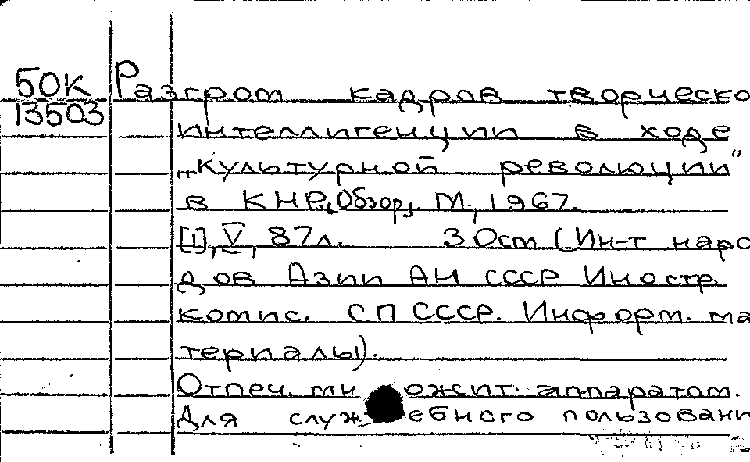 50К Разгром кадров творческо
13503
интеллигенции в ходе
„культурной революции"
в КНР. [Обзор]. М., 1967.
[1], V, 87л. 30ст (Ин-т наро
дов Азии АН СССР Иностр.
комис. СП СССР. Информ. ма
териалы).
Отпеч. мн ожит. аппаратом.
Для служ ебного пользовани